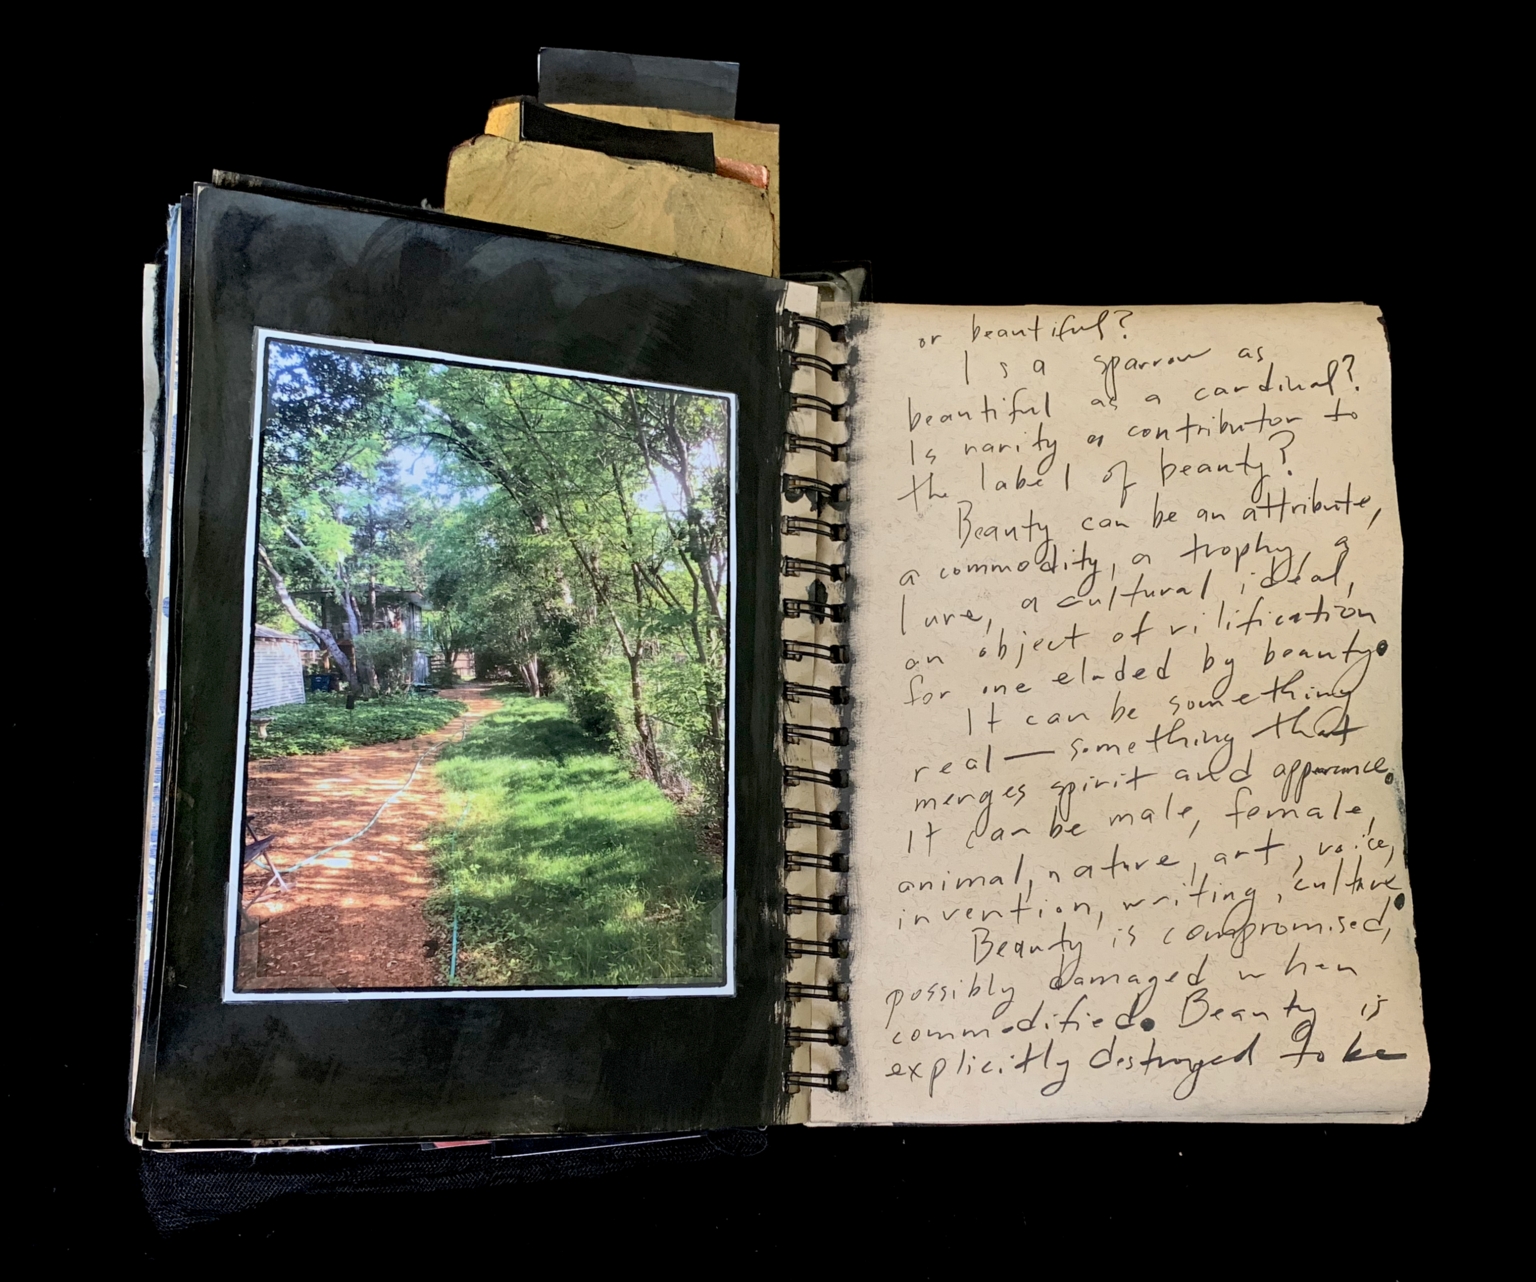 or beautiful?
Is a sparrow as
beautiful as a cardinal?
Is rarity a contributor to
the label of beauty?
Beauty can be an attribute,
a commodity, a trophy, a
lure, a cultural ideal,
an object of vilification
for one eluded by beauty.
It can be something
real — something that
merges spirit and appearance.
It can be male, female,
animal, nature, art, voice,
invention, writing, culture.
Beauty is compromised,
possibly damaged when
commodified. Beauty is
explicitly destroyed to be